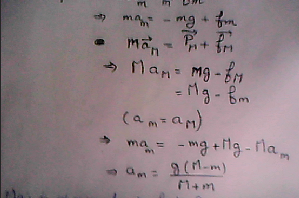 ⇒ ma_m = -mg + f_m
• Ma⃗_M = P⃗_M + f⃗_M
⇒ Ma_M = Mg - f_M
= Mg - f_m
(a_m = a_M)
⇒ ma_m = -mg + Mg - Ma_m
⇒ a_m = g(M-m)/(M+m)